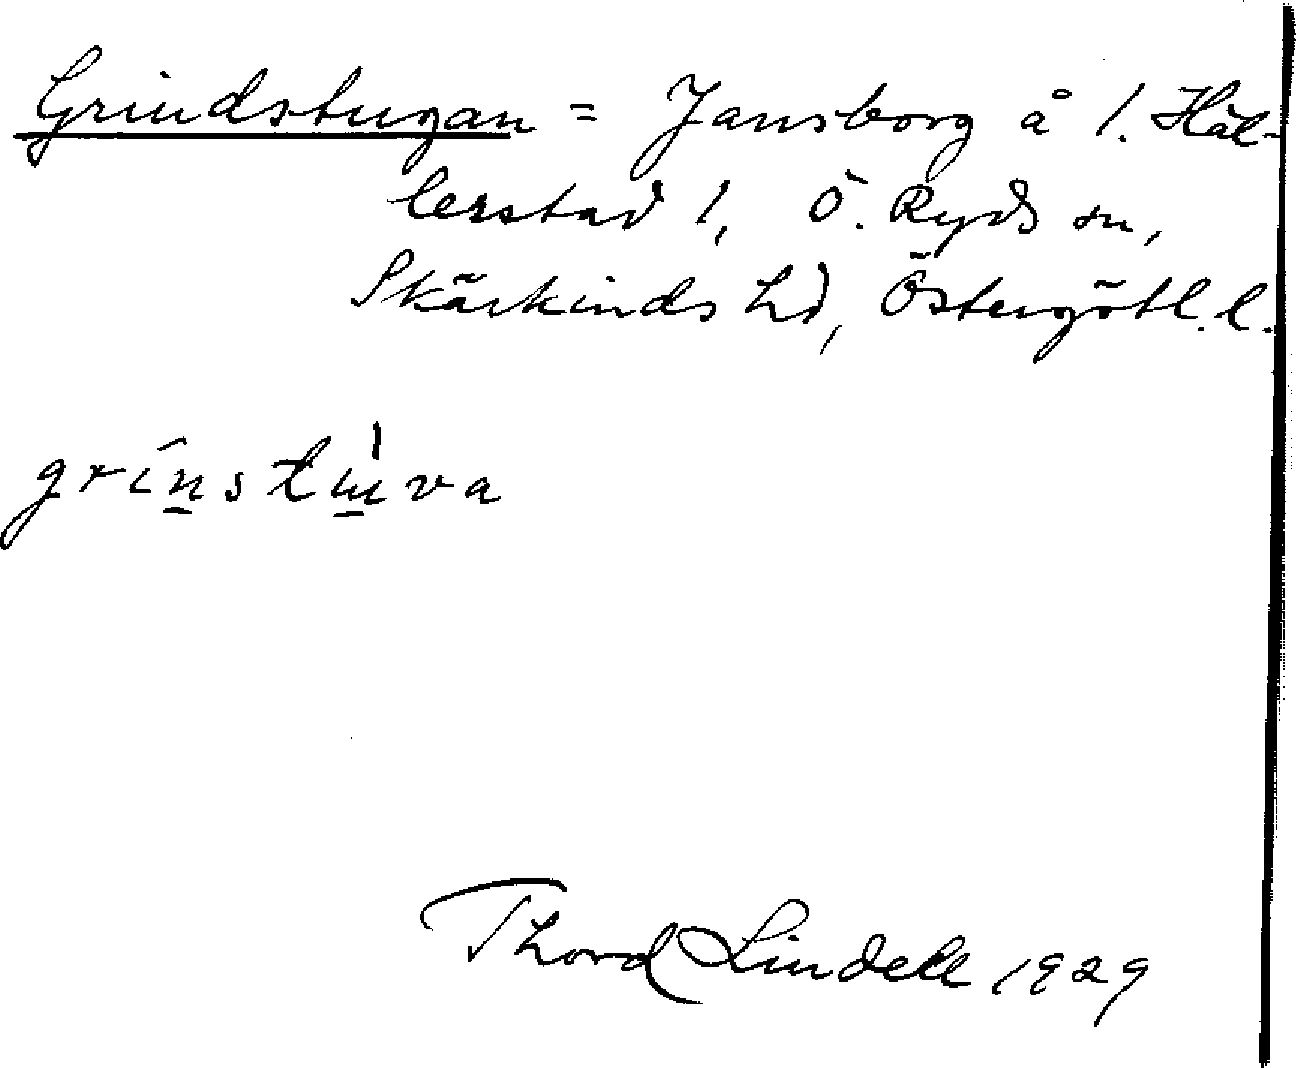 Grindstugan = Jansborg å l. Häl-
lerstad 1, Ö. Ryds sn,
Skärkinds hd, Östergötl. l.
grinstuva
Thord Lindell 1929